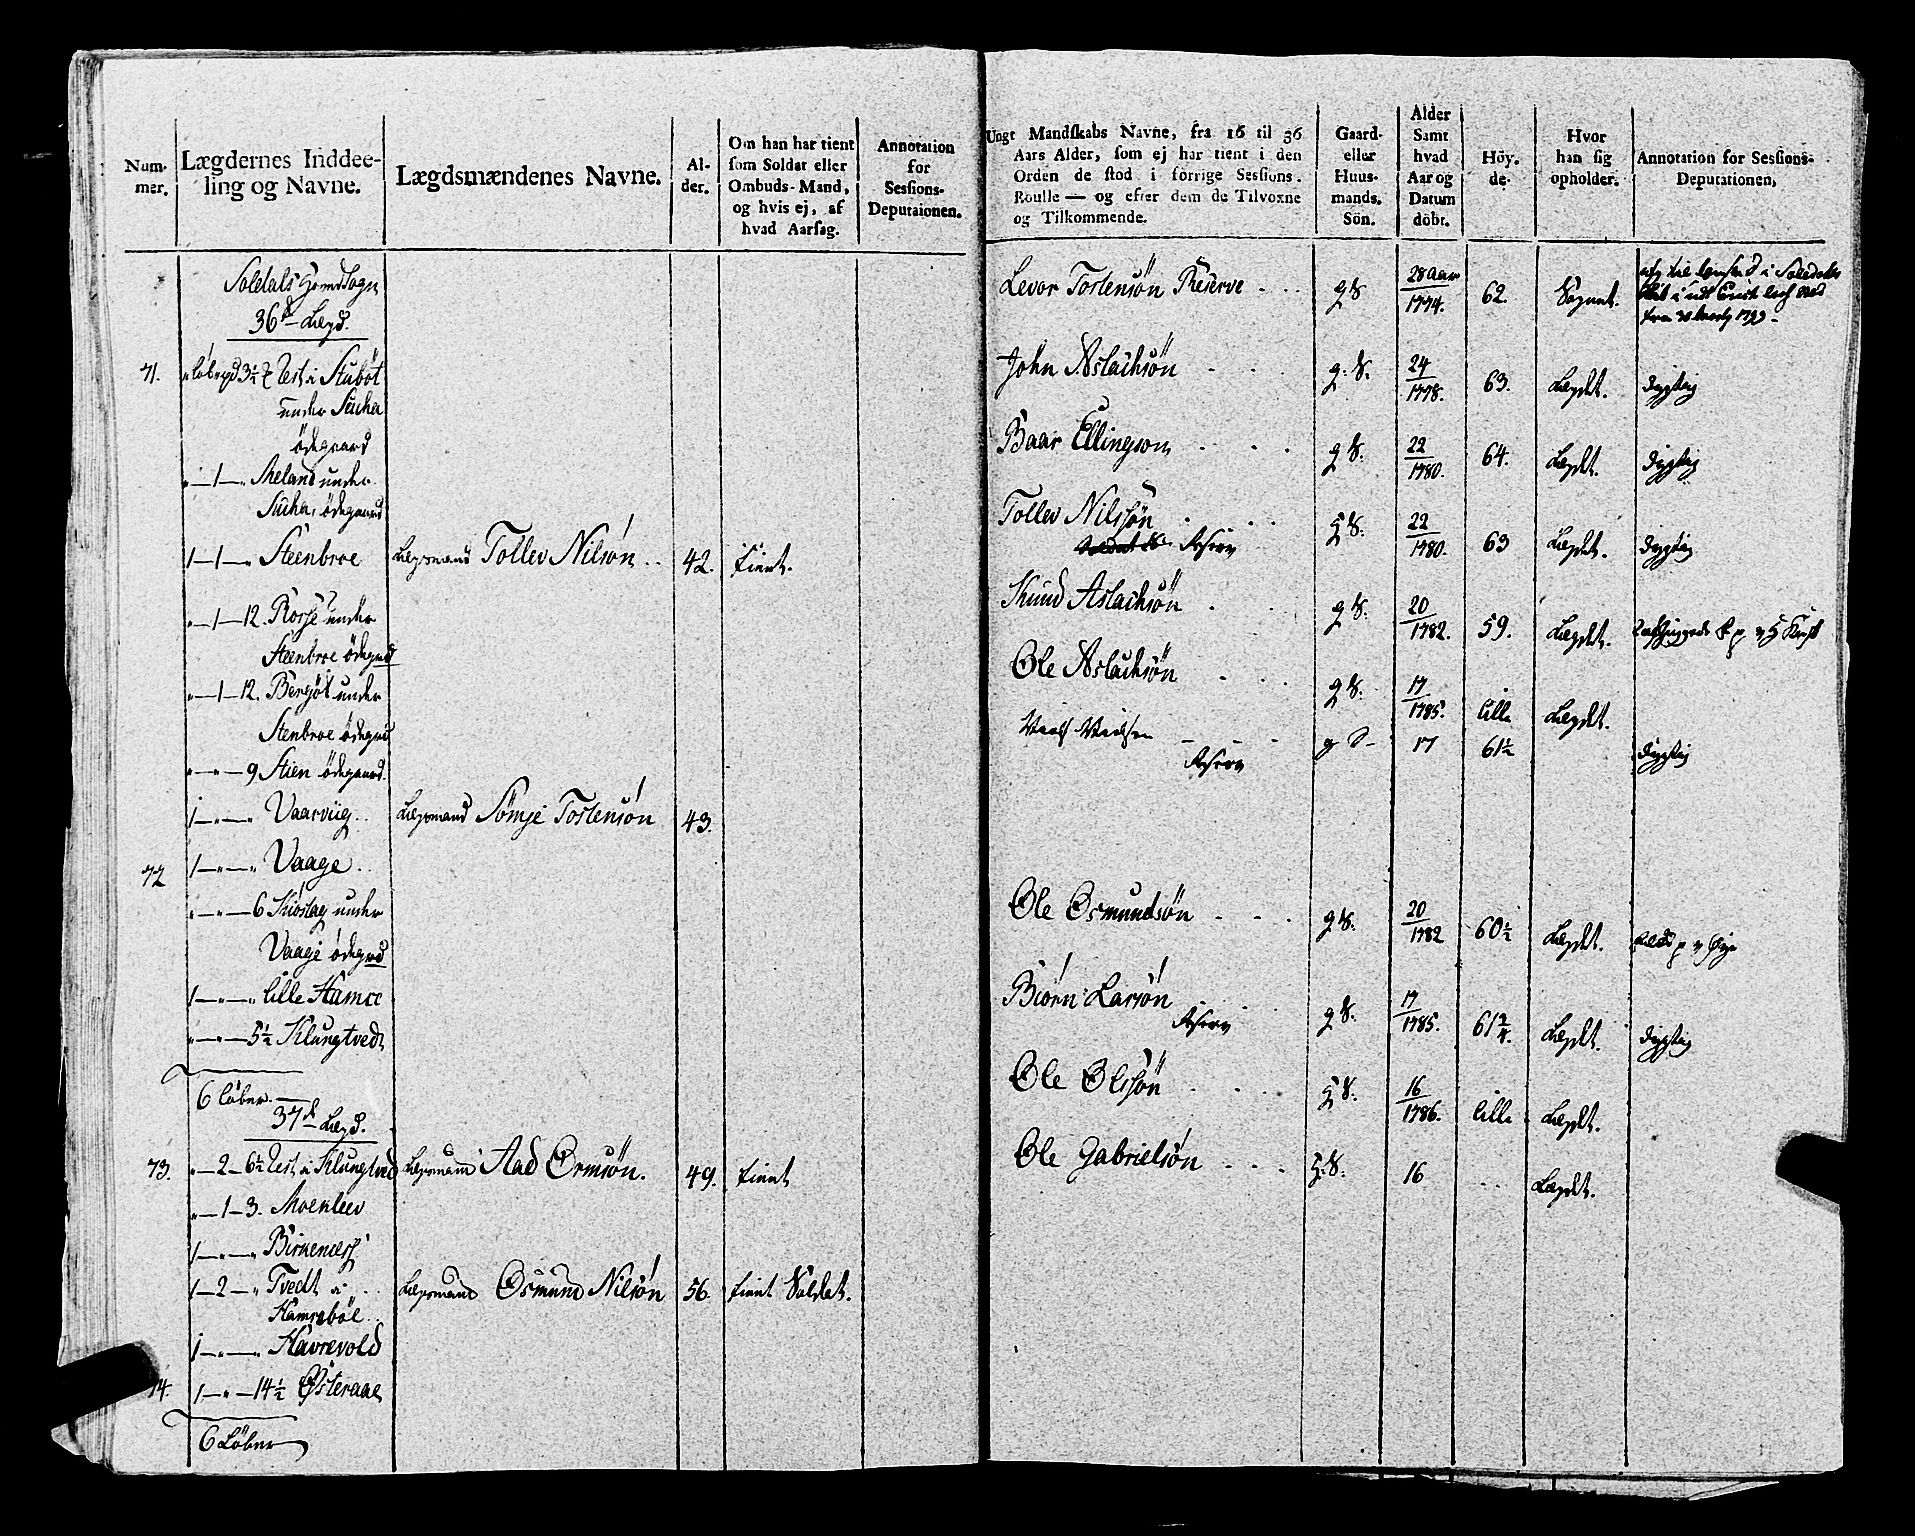 Num-
mer.
Lægdernes Inddee-
ling og Navne.
Lægdsmændenes Navne.
Al-
der.
Om han har tient
som Soldat eller
Ombuds-Mand,
og hvis ej, af
hvad Aarsag.
Annotation
for
Sessions-
Deputaionen.
36te Lægd.
71. Rest i Stubøt
under
ødegaard
Meland under
ødegaard
1 Steenbroe Lægsmand Tollev Nilsón 42. tient.
1 12. under
Steenbroe ødegrd
1 12. under
Stenbroe ødegrd
9 Stien ødegaard
1 Vaarviig Lægsmand Sömje Torstensón 43.
72 1 Vaage
6 under
Vaage ødegrd
1 lille Hamre
5½ Klungtvedt
6 Løber.
37te Lægd.
73. 2 6½ Rest i Klungtved Lægsmand Aad Ormsón. 49. tient
1 3. Moenleev
1 Birkenæss
1 2 Tvedt i Lægsmand Osmund Nilsón 56. tient Soldat.
Hamreböe
1 Havrevold
74. 1 14½ Østeraae
6 Løber
Ungt Mandskabs Navne, fra 16 til 36
Aars Alder, som ej har tient i den
Orden de stod i forrige Sessions-
Roulle — og efter dem de Tilvoxne
og Tilkommende.
Gaard-
eller
Huus-
mands.
Sön.
Alder
Samt
hvad
Aar og
Datum
döbt.
Höy-
de.
Hvor
han sig
opholder.
Annotation for Sessions-
Deputationen,
Levor Torstensön Reserve g S 28 Aar 1774. 62. Sognet.
John Aslachsön g. S. 24 1778. 63. Lægdet. dygtig
Baar Ellingson g S. 22 1780. 64. Lægdet. dygtig
Tollev Nilssön g S. 22 1780. 63 Lægdet. dygtig
Reserv
Knud Aslachsön g S. 20 1782. 59. Lægdet.
Ole Aslachsön g S. 17 1785. lille Lægdet.
Niels Nielsen g S 17 61½ dygtig
Reserv
Ole Osmundsön g S. 20 1782 60½ Lægdet.
Biörn Larsön g S. 17 1785. 61¾ Lægdet. dygtig
Reserv
Ole Olssön g S. 16 1786. lille Lægdet.
Ole Gabrielsön g. S. 16 Lægdet.